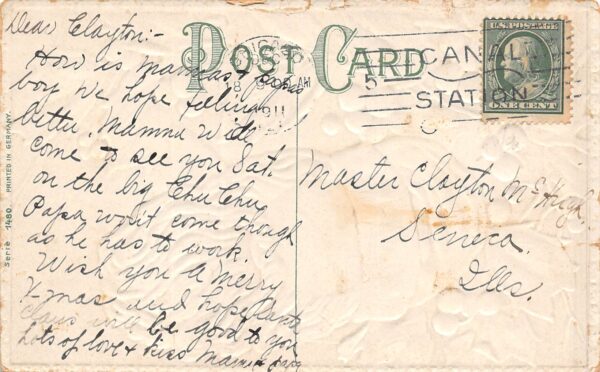 Dear Clayton:-
How is mamas & papas
boy we hope feeling
better. Mamma will
come to see you Sat.
on the big Chu Chu
Papa wont come though
as he has to work.
Wish you a merry
X-mas and hope Santa
Claus will be good to you
lots of love & kiss Mama & papa
POST CARD
8 AM
1911
5
CANAL
STATION
U.S. POSTAGE
ONE CENT
Master Clayton McHugh
Seneca.
Ills.
Serie 1480. PRINTED IN GERMANY.